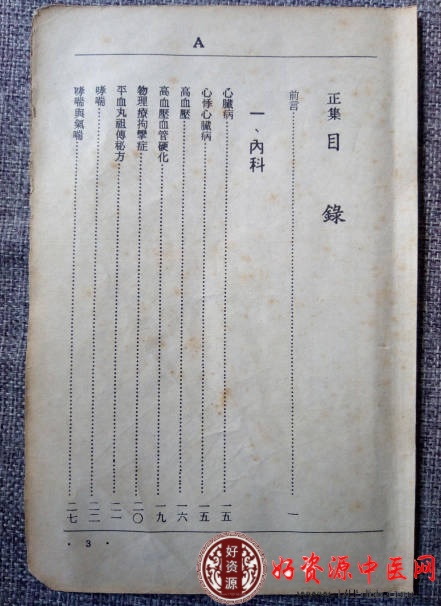 A
正集 目 錄
前言 一
一、內科
心臟病 一五
心悸心臟病 一五
高血壓 一六
高血壓血管硬化 一九
物理療拘攣症 二〇
平血丸祖傳秘方 二一
哮喘 二二
哮喘與氣喘 二七
· 3 ·
好资源
好资源中医网